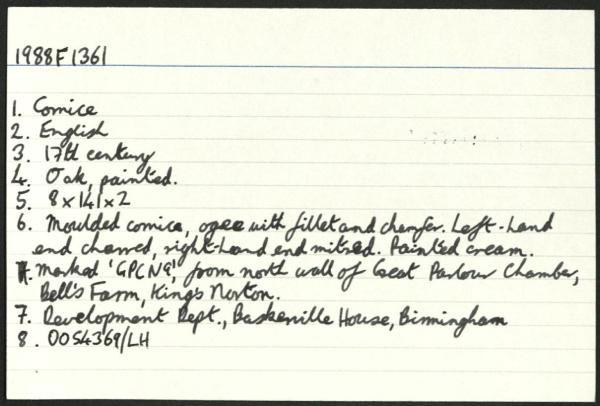 1988F1361
1. Cornice
2. English
3. 17th century
4. Oak, painted.
5. 8x141x2
6. Moulded cornice, ogee with fillet and chamfer. Left-hand
end charred, right-hand end mitred. Painted cream.
Marked 'GPCN9', from north wall of Great Parlour Chamber,
Bell's Farm, King's Norton.
7. Development Dept., Baskerville House, Birmingham
8. 0054369/LH